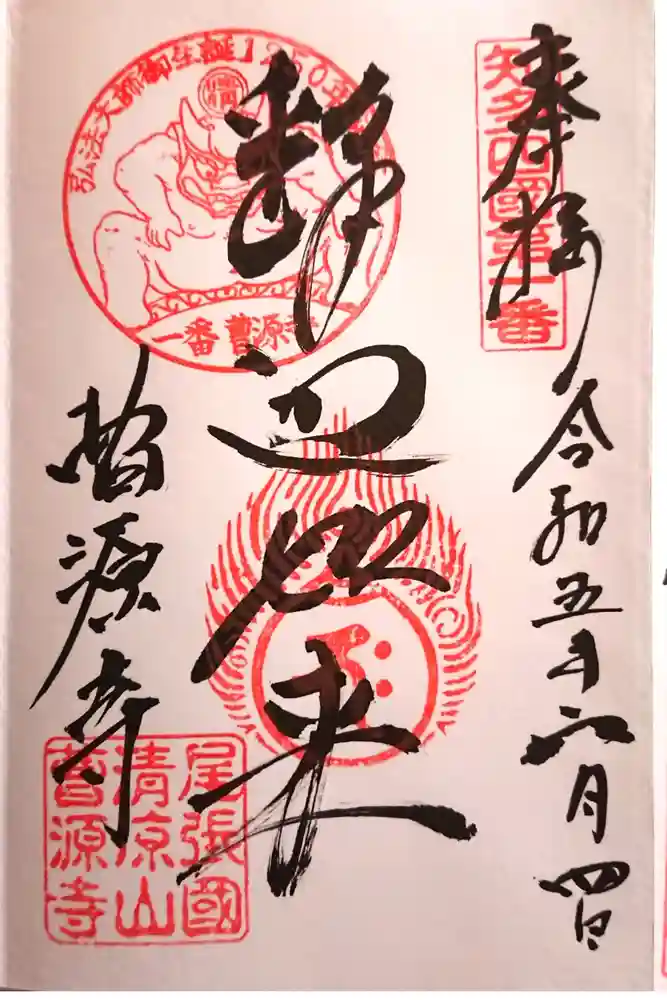 奉拝
令和五年六月四日
知多四國第一番
釈迦如来
弘法大師御生誕1250年
一番 曹源寺
曹源寺
尾張國
清涼山
曹源寺